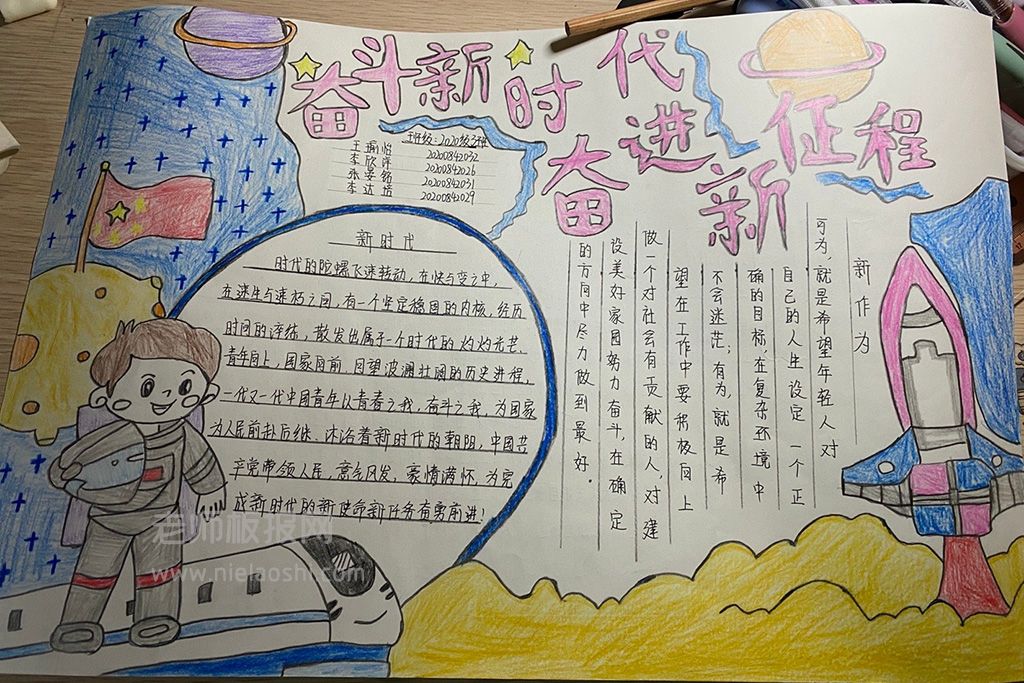 奋斗新时代
奋进新征程
班级：2020级3班
王瑜怡 20200842032
李欣萍 20200842026
张晏铭 20200842031
李达培 20200842029
新时代
时代的陀螺飞速转动，在快与变之中，
在迷生与速朽之间，有一个坚定稳固的内核，经历
时间的淬炼，散发出属于一个时代的灼灼光芒。
青年向上，国家向前，回望波澜壮阔的历史进程，
一代又一代中国青年以青春之我，奋斗之我，为国家
为人民前赴后继、沐浴着新时代的朝阳，中国共
产党带领人民，意气风发，豪情满怀，为完
成新时代的新使命新任务有勇前进！
新作为
可为，就是希望年轻人对
自己的人生设定一个正
确的目标，在复杂环境中
不会迷茫；有为，就是希
望在工作中要积极向上
做一个对社会有贡献的人，对建
设美好家园努力奋斗，在确定
的方向中尽力做到最好。
老师板报网
www.nielaoshi.com